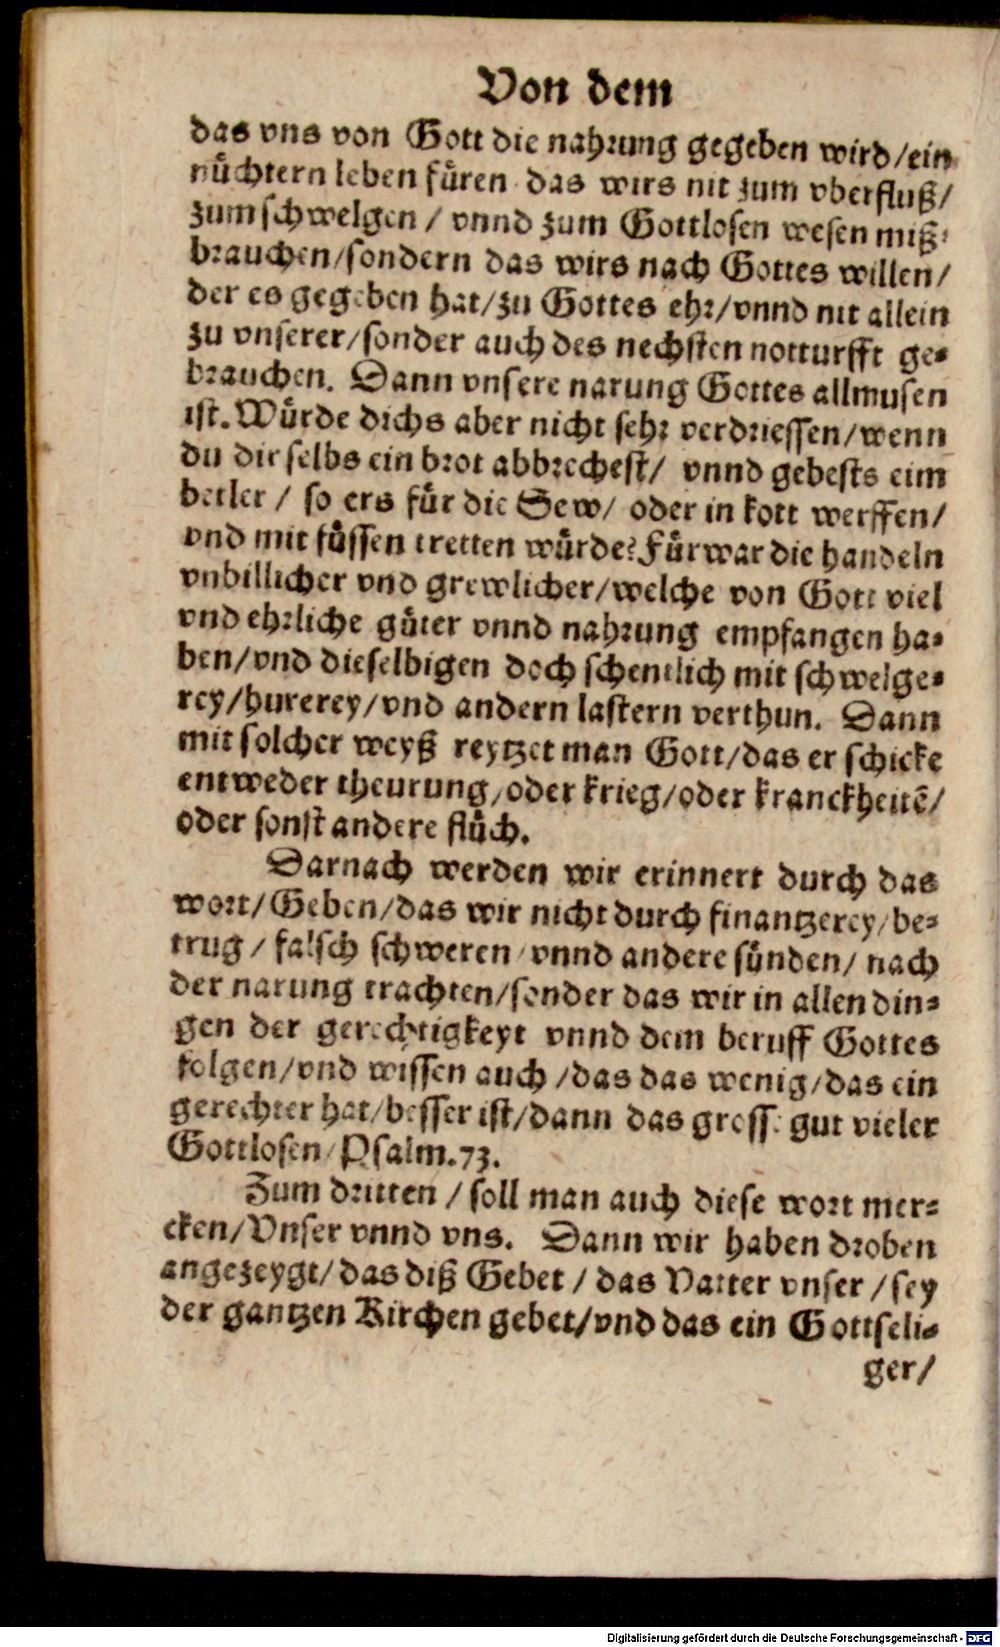 Von dem
das vns von Gott die nahrung gegeben wird/ein
nuͤchtern leben fuͤren das wirs nit zum vberfluß/
zum schwelgen / vnnd zum Gottlosen wesen miß-
brauchen/sondern das wirs nach Gottes willen/
der es gegeben hat/zu Gottes ehr/vnnd nit allein
zu vnserer/sonder auch des nechsten notturfft ge-
brauchen. Dann vnsere narung Gottes allmusen
ist. Wuͤrde dichs aber nicht sehr verdriessen/wenn
du dir selbs ein brot abbrechest/ vnnd gebests eim
betler / so ers fuͤr die Sew/ oder in kott werffen/
vnd mit fuͤssen tretten wuͤrde? Fuͤrwar die handeln
vnbillicher vnd grewlicher/welche von Gott viel
vnd ehrliche guͤter vnnd nahrung empfangen ha-
ben/vnd dieselbigen doch schentlich mit schwelge-
rey/hurerey/vnd andern lastern verthun. Dann
mit solcher weyß reytzet man Gott/das er schicke
entweder theurung/oder krieg/oder kranckheitẽ/
oder sonst andere fluͤch.
Darnach werden wir erinnert durch das
wort/Geben/das wir nicht durch finantzerey/be-
trug / falsch schweren/vnnd andere suͤnden/ nach
der narung trachten/sonder das wir in allen din-
gen der gerechtigkeyt vnnd dem beruff Gottes
folgen/vnd wissen auch /das das wenig/das ein
gerechter hat/besser ist/dann das grosse gut vieler
Gottlosen/Psalm.73.
Zum dritten / soll man auch diese wort mer-
cken/Vnser vnnd vns. Dann wir haben droben
angezeygt/das diß Gebet / das Vatter vnser / sey
der gantzen Kirchen gebet/vnd das ein Gottseli-
ger/
Digitalisierung gefördert durch die Deutsche Forschungsgemeinschaft - DFG